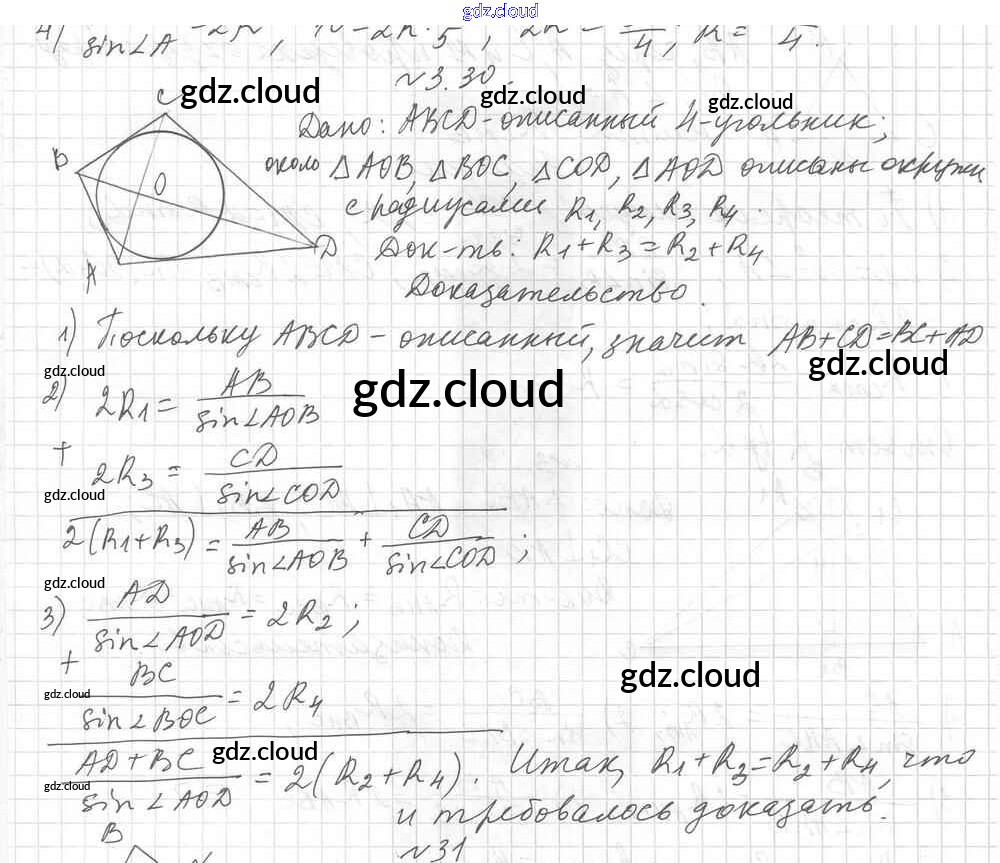 gdz.cloud
4) sin∠A
№3.30.
gdz.cloud
gdz.cloud
gdz.cloud
C
B
O
A
D
Дано: ABCD-описанный 4-угольник;
около △AOB, △BOC, △COD, △AOD описаны окружн
с радиусами R₁, R₂, R₃, R₄.
Док-ть: R₁+R₃=R₂+R₄
Доказательство.
1) Поскольку ABCD-описанный, значит AB+CD=BC+AD
gdz.cloud
gdz.cloud
gdz.cloud
2) 2R₁ = AB / sin∠AOB
+ 2R₃ = CD / sin∠COD
gdz.cloud
2(R₁+R₃) = AB / sin∠AOB + CD / sin∠COD ;
gdz.cloud
3) AD / sin∠AOD = 2R₂;
+ BC / sin∠BOC = 2R₄
gdz.cloud
gdz.cloud
gdz.cloud
AD+BC / sin∠AOD = 2(R₂+R₄). Итак, R₁+R₃=R₂+R₄, что
gdz.cloud
и требовалось доказать.
B
№31